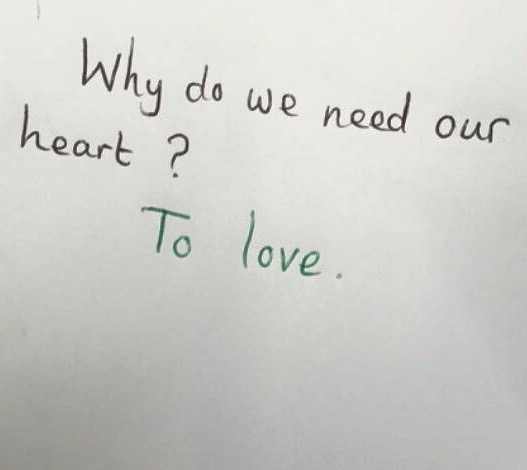 Why do we need our
heart ?
To love.